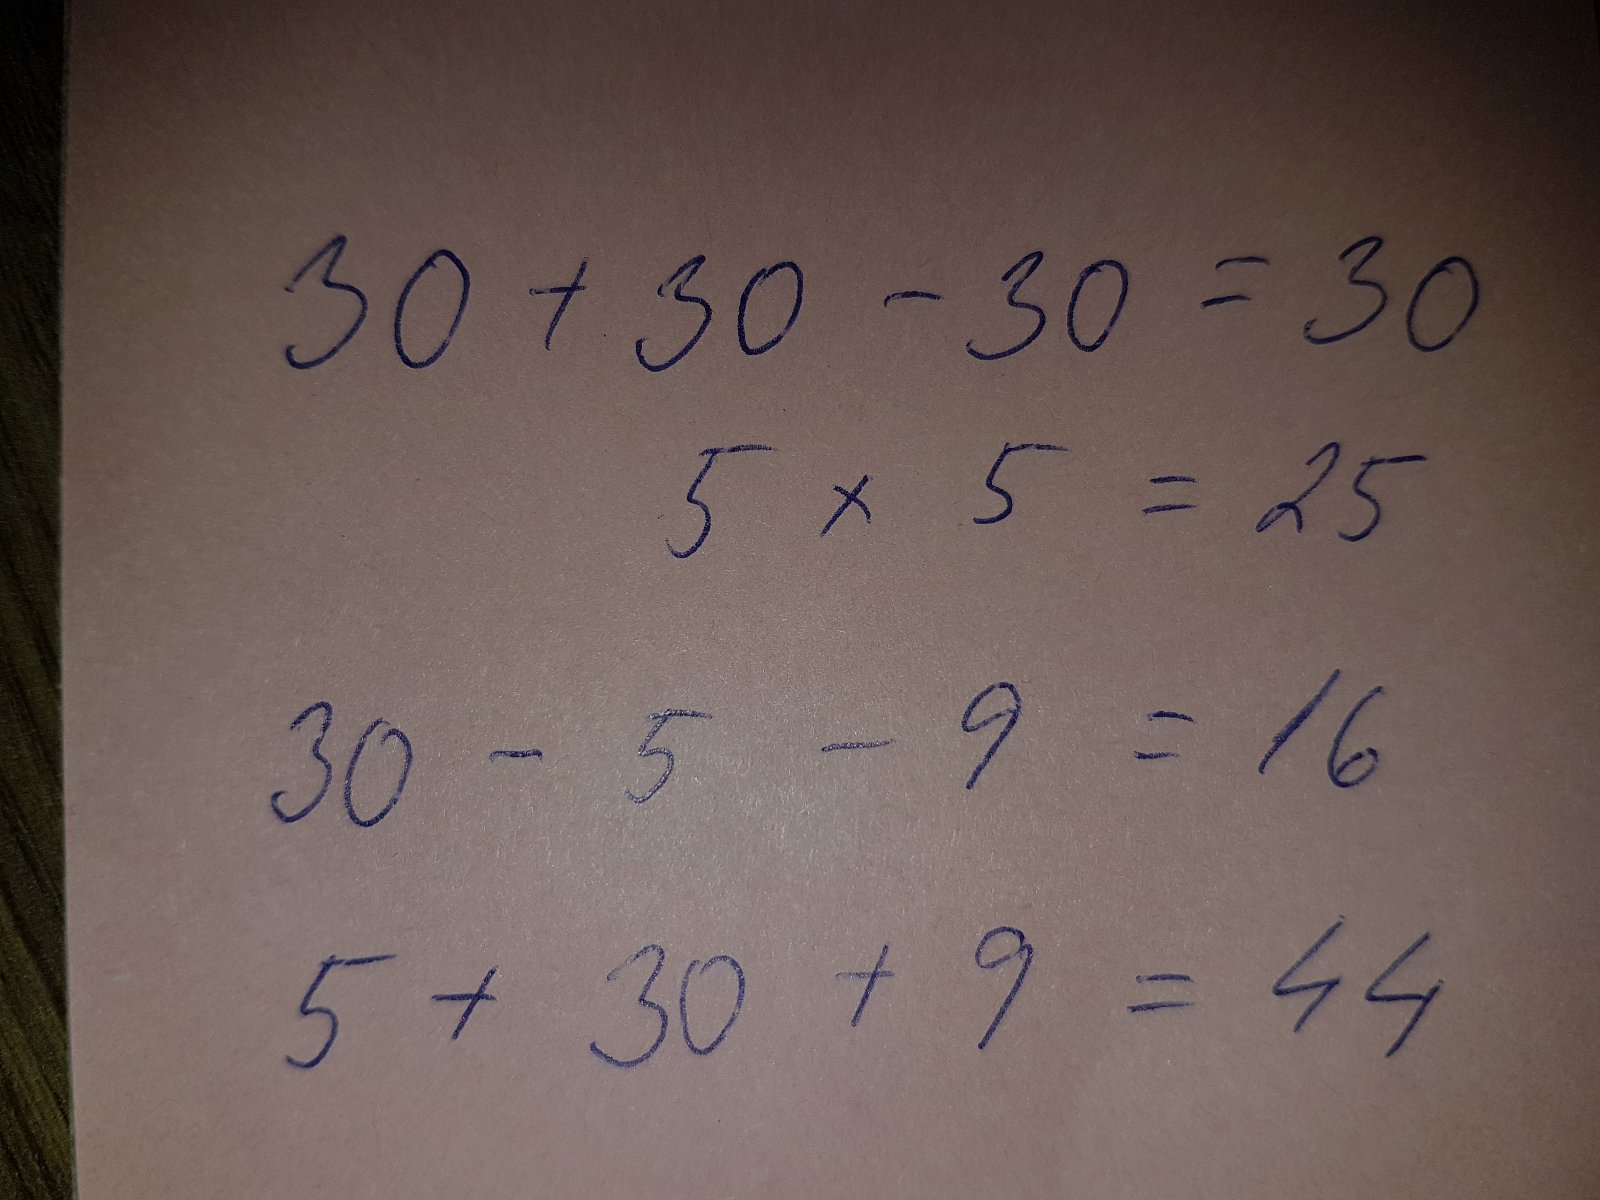 30 + 30 - 30 = 30
5 × 5 = 25
30 - 5 - 9 = 16
5 + 30 + 9 = 44